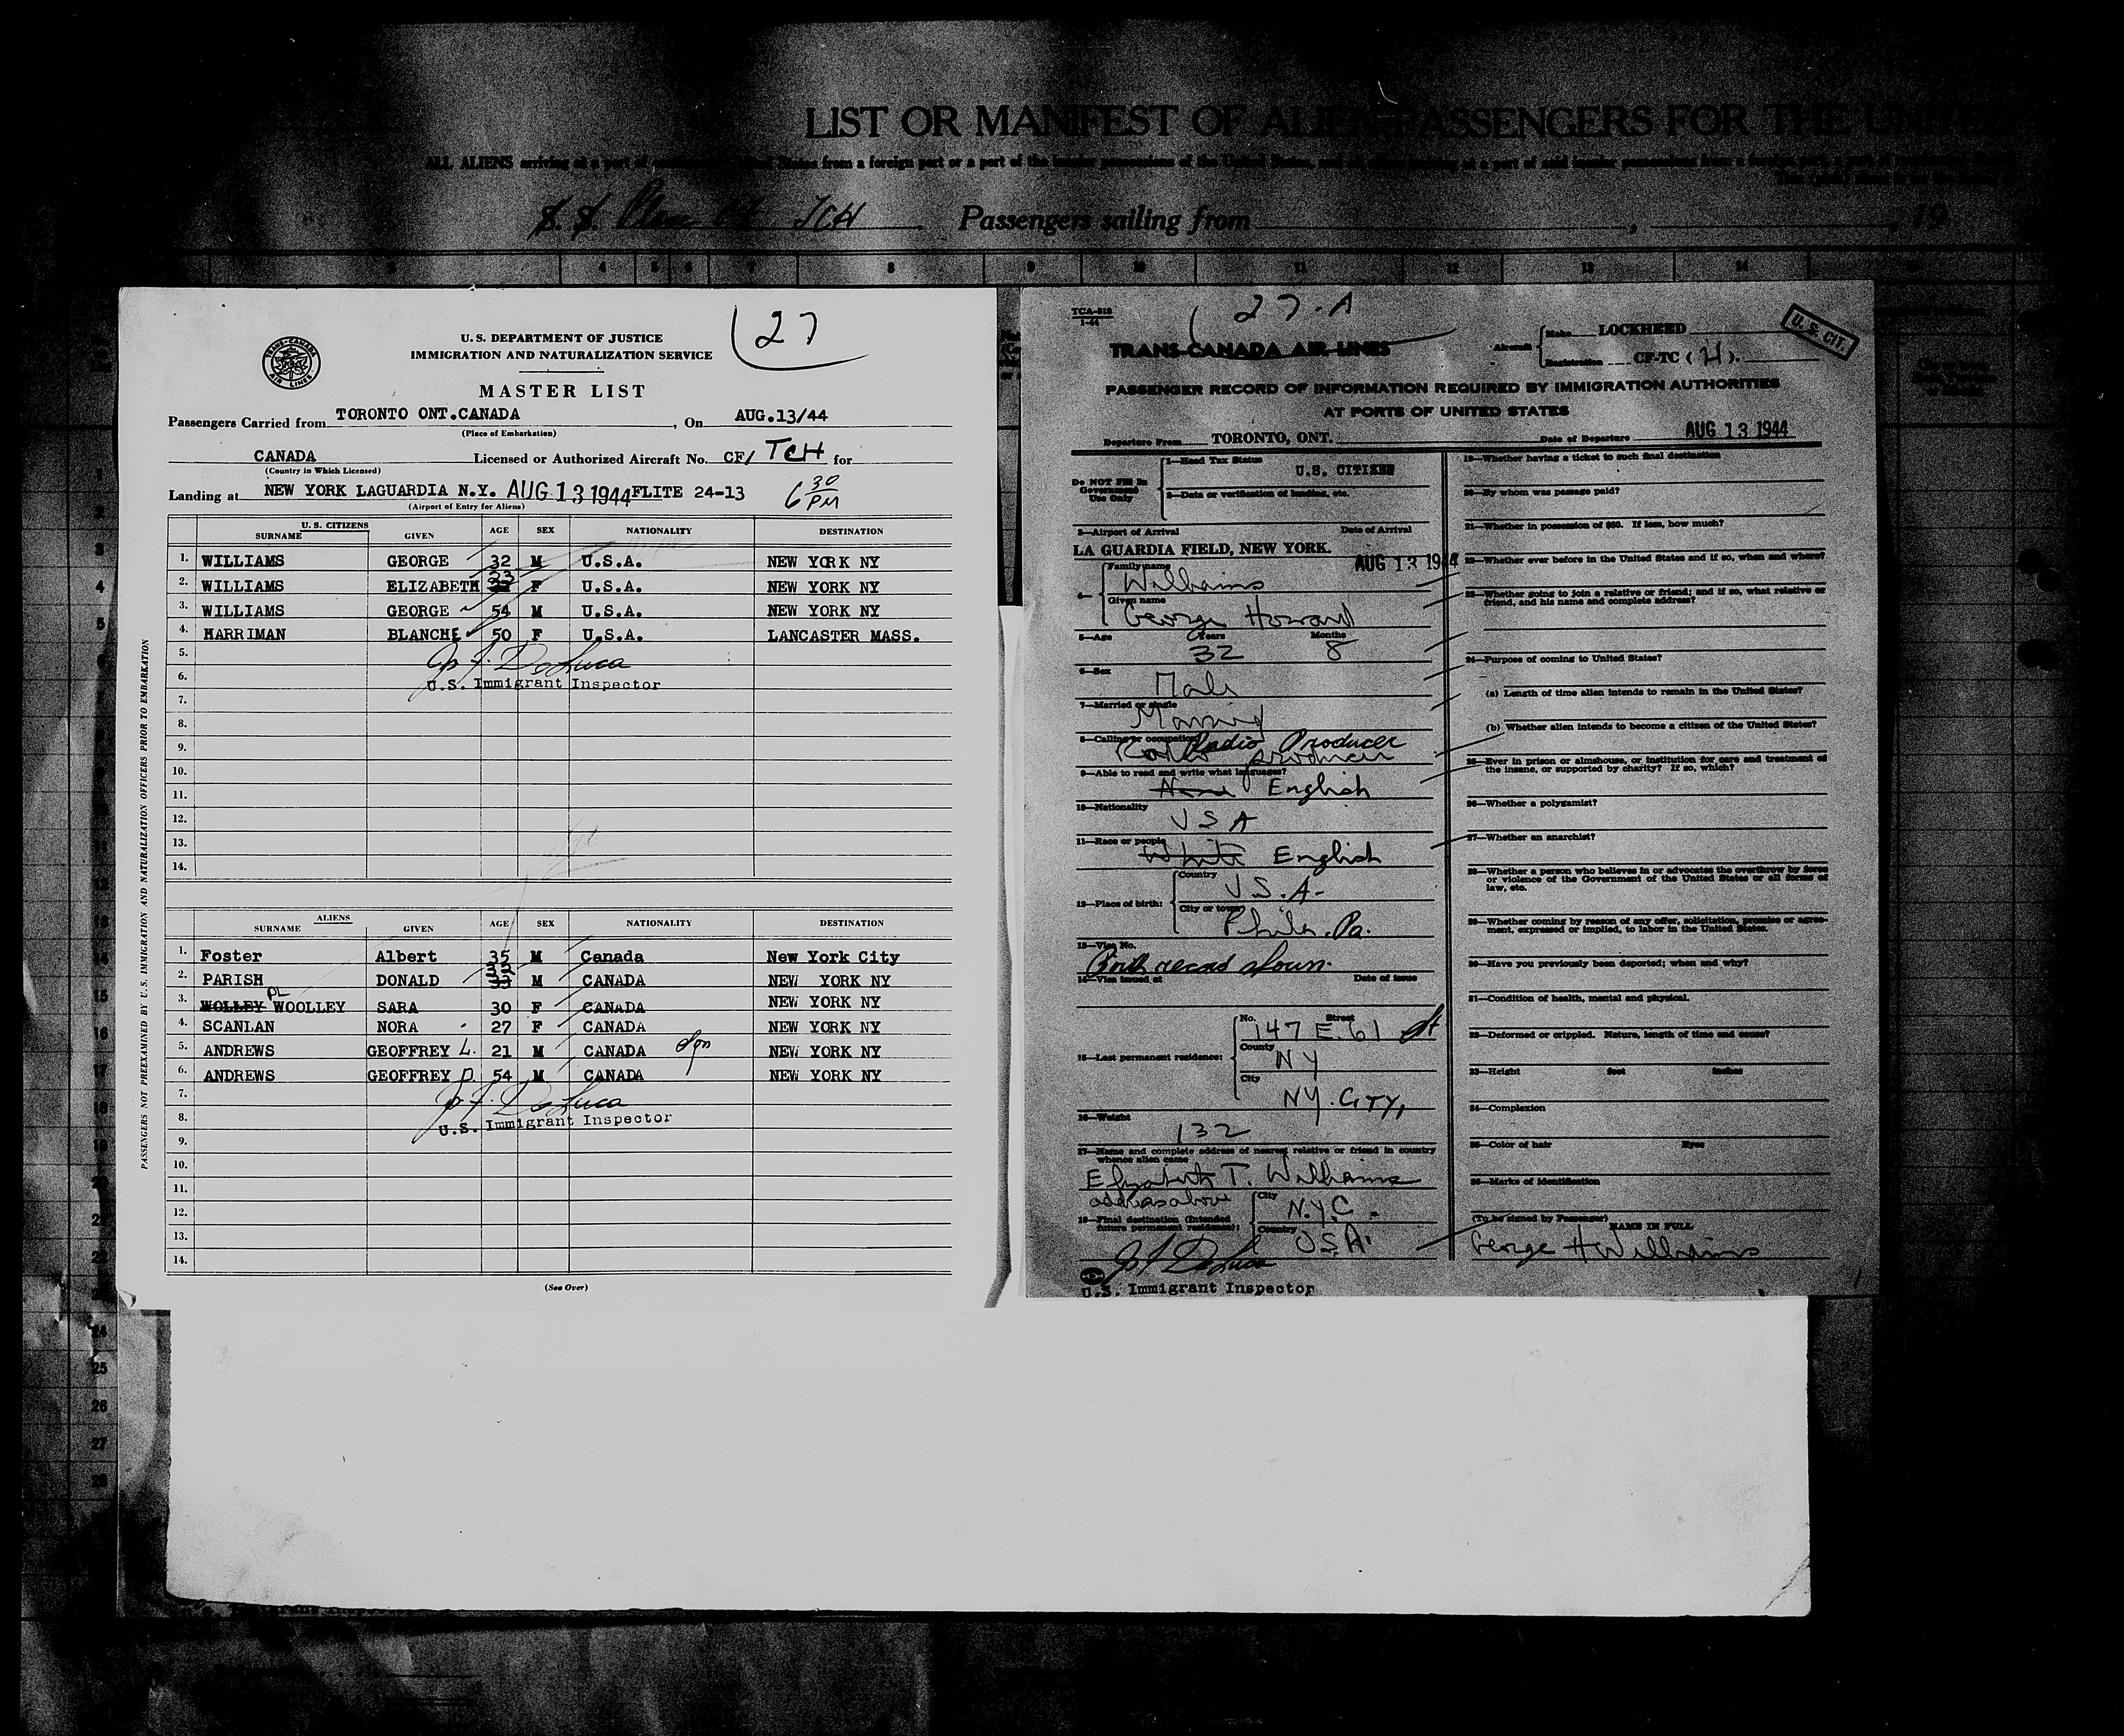 LIST OR MANIFEST OF ALIEN PASSENGERS FOR THE UNITED
ALL ALIENS arriving at a port of continental United States from a foreign port or a port of the insular possessions of the United States, and all aliens arriving at a port of said insular possessions from a foreign port, a port of
S. S. Plane TCH Passengers sailing from , , 19
3 4 5 6 7 8 9 10 11 12 13 14
27
TRANS-CANADA AIR LINES
U. S. DEPARTMENT OF JUSTICE
IMMIGRATION AND NATURALIZATION SERVICE
MASTER LIST
Passengers Carried from TORONTO ONT.CANADA , On AUG.13/44
(Place of Embarkation)
CANADA Licensed or Authorized Aircraft No. CF/ TCH for
(Country in Which Licensed)
Landing at NEW YORK LAGUARDIA N.Y. AUG 13 1944 FLITE 24-13 6 30 PM
(Airport of Entry for Aliens)
U. S. CITIZENS
SURNAME GIVEN AGE SEX NATIONALITY DESTINATION
1. WILLIAMS GEORGE 32 M U.S.A. NEW YORK NY
2. WILLIAMS ELIZABETH 33 F U.S.A. NEW YORK NY
3. WILLIAMS GEORGE 54 M U.S.A. NEW YORK NY
4. HARRIMAN BLANCHE 50 F U.S.A. LANCASTER MASS.
5.
6. U.S. Immigrant Inspector
7.
8.
9.
10.
11.
12.
13.
14.
ALIENS
SURNAME GIVEN AGE SEX NATIONALITY DESTINATION
1. Foster Albert 35 M Canada New York City
2. PARISH DONALD 33 M CANADA NEW YORK NY
3. WOLLEY WOOLLEY SARA 30 F CANADA NEW YORK NY
4. SCANLAN NORA 27 F CANADA NEW YORK NY
5. ANDREWS GEOFFREY L. 21 M CANADA NEW YORK NY
6. ANDREWS GEOFFREY D. 54 M CANADA NEW YORK NY
7. J. F. DeLuca
8. U.S. Immigrant Inspector
9.
10.
11.
12.
13.
14.
(See Over)
PASSENGERS NOT PREEXAMINED BY U.S. IMMIGRATION AND NATURALIZATION OFFICERS PRIOR TO EMBARKATION
TCA-818
1-44
27-A
TRANS-CANADA AIR LINES
Aircraft Make LOCKHEED
Registration CF-TC ( H ).
U. S. CIT.
PASSENGER RECORD OF INFORMATION REQUIRED BY IMMIGRATION AUTHORITIES
AT PORTS OF UNITED STATES
Departure From TORONTO, ONT. Date of Departure AUG 13 1944
Do NOT Fill In Government Use Only
1—Head Tax Status U.S. CITIZEN
2—Data or verification of landing, etc.
3—Airport of Arrival Date of Arrival
LA GUARDIA FIELD, NEW YORK. AUG 13 1944
4— Family name Williams
Given name George Howard
5—Age Years 32 Months 8
6—Sex Male
7—Married or single Married
8—Calling or occupation Radio Producer
producer
9—Able to read and write what languages?
English
10—Nationality USA
11—Race or people White English
12—Place of birth: Country U.S.A.
City or town Phila. Pa.
13—Visa No. Birth record shown.
14—Visa issued at Date of issue
15—Last permanent residence: No. Street 147 E. 61 St
County NY
City NY. CITY,
16—Weight 132
17—Name and complete address of nearest relative or friend in country whence alien came
Elizabeth T. Williams
address above
18—Final destination (Intended future permanent residence): City N.Y.C.
Country U.S.A.
J F DeLuca
U.S. Immigrant Inspector
19—Whether having a ticket to such final destination
20—By whom was passage paid?
21—Whether in possession of $50. If less, how much?
22—Whether ever before in the United States and if so, when and where?
23—Whether going to join a relative or friend; and if so, what relative or
friend, and his name and complete address?
24—Purpose of coming to United States?
(a) Length of time alien intends to remain in the United States?
(b) Whether alien intends to become a citizen of the United States?
25—Ever in prison or almshouse, or institution for care and treatment of
the insane, or supported by charity? If so, which?
26—Whether a polygamist?
27—Whether an anarchist?
28—Whether a person who believes in or advocates the overthrow by force
or violence of the Government of the United States or all forms of
law, etc.
29—Whether coming by reason of any offer, solicitation, promise or agree-
ment, expressed or implied, to labor in the United States.
30—Have you previously been deported; when and why?
31—Condition of health, mental and physical.
32—Deformed or crippled. Nature, length of time and cause?
33—Height feet inches
34—Complexion
35—Color of hair Eyes
36—Marks of identification
(To be signed by Passenger) NAME IN FULL
George H Williams